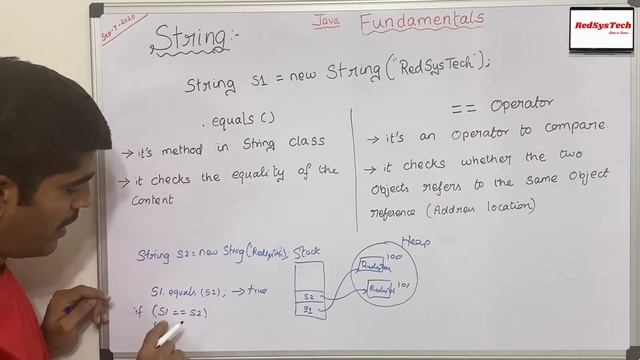 Sep-7-2020
Java Fundamentals
RedSysTech
String:-
String s1 = new String("RedSysTech");
.equals()
→ it's method in String class
→ it checks the equality of the content
== Operator
→ it's an Operator to compare
→ it checks whether the two
Objects refers to the same Object
reference (Address location)
String s2 = new String(
s1.equals(s2); → true
if (s1 == s2)
Stack
s2
s1
Heap
100
101